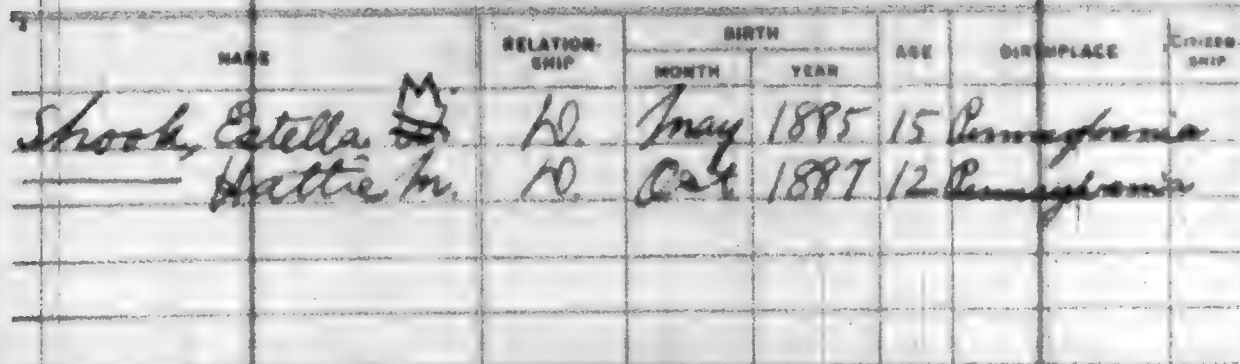 NAME RELATION-SHIP BIRTH MONTH YEAR AGE BIRTHPLACE CITIZEN-SHIP
Shook, Estella M. D. May 1885 15 Pennsylvania
Hattie M. D. Oct 1887 12 Pennsylvania